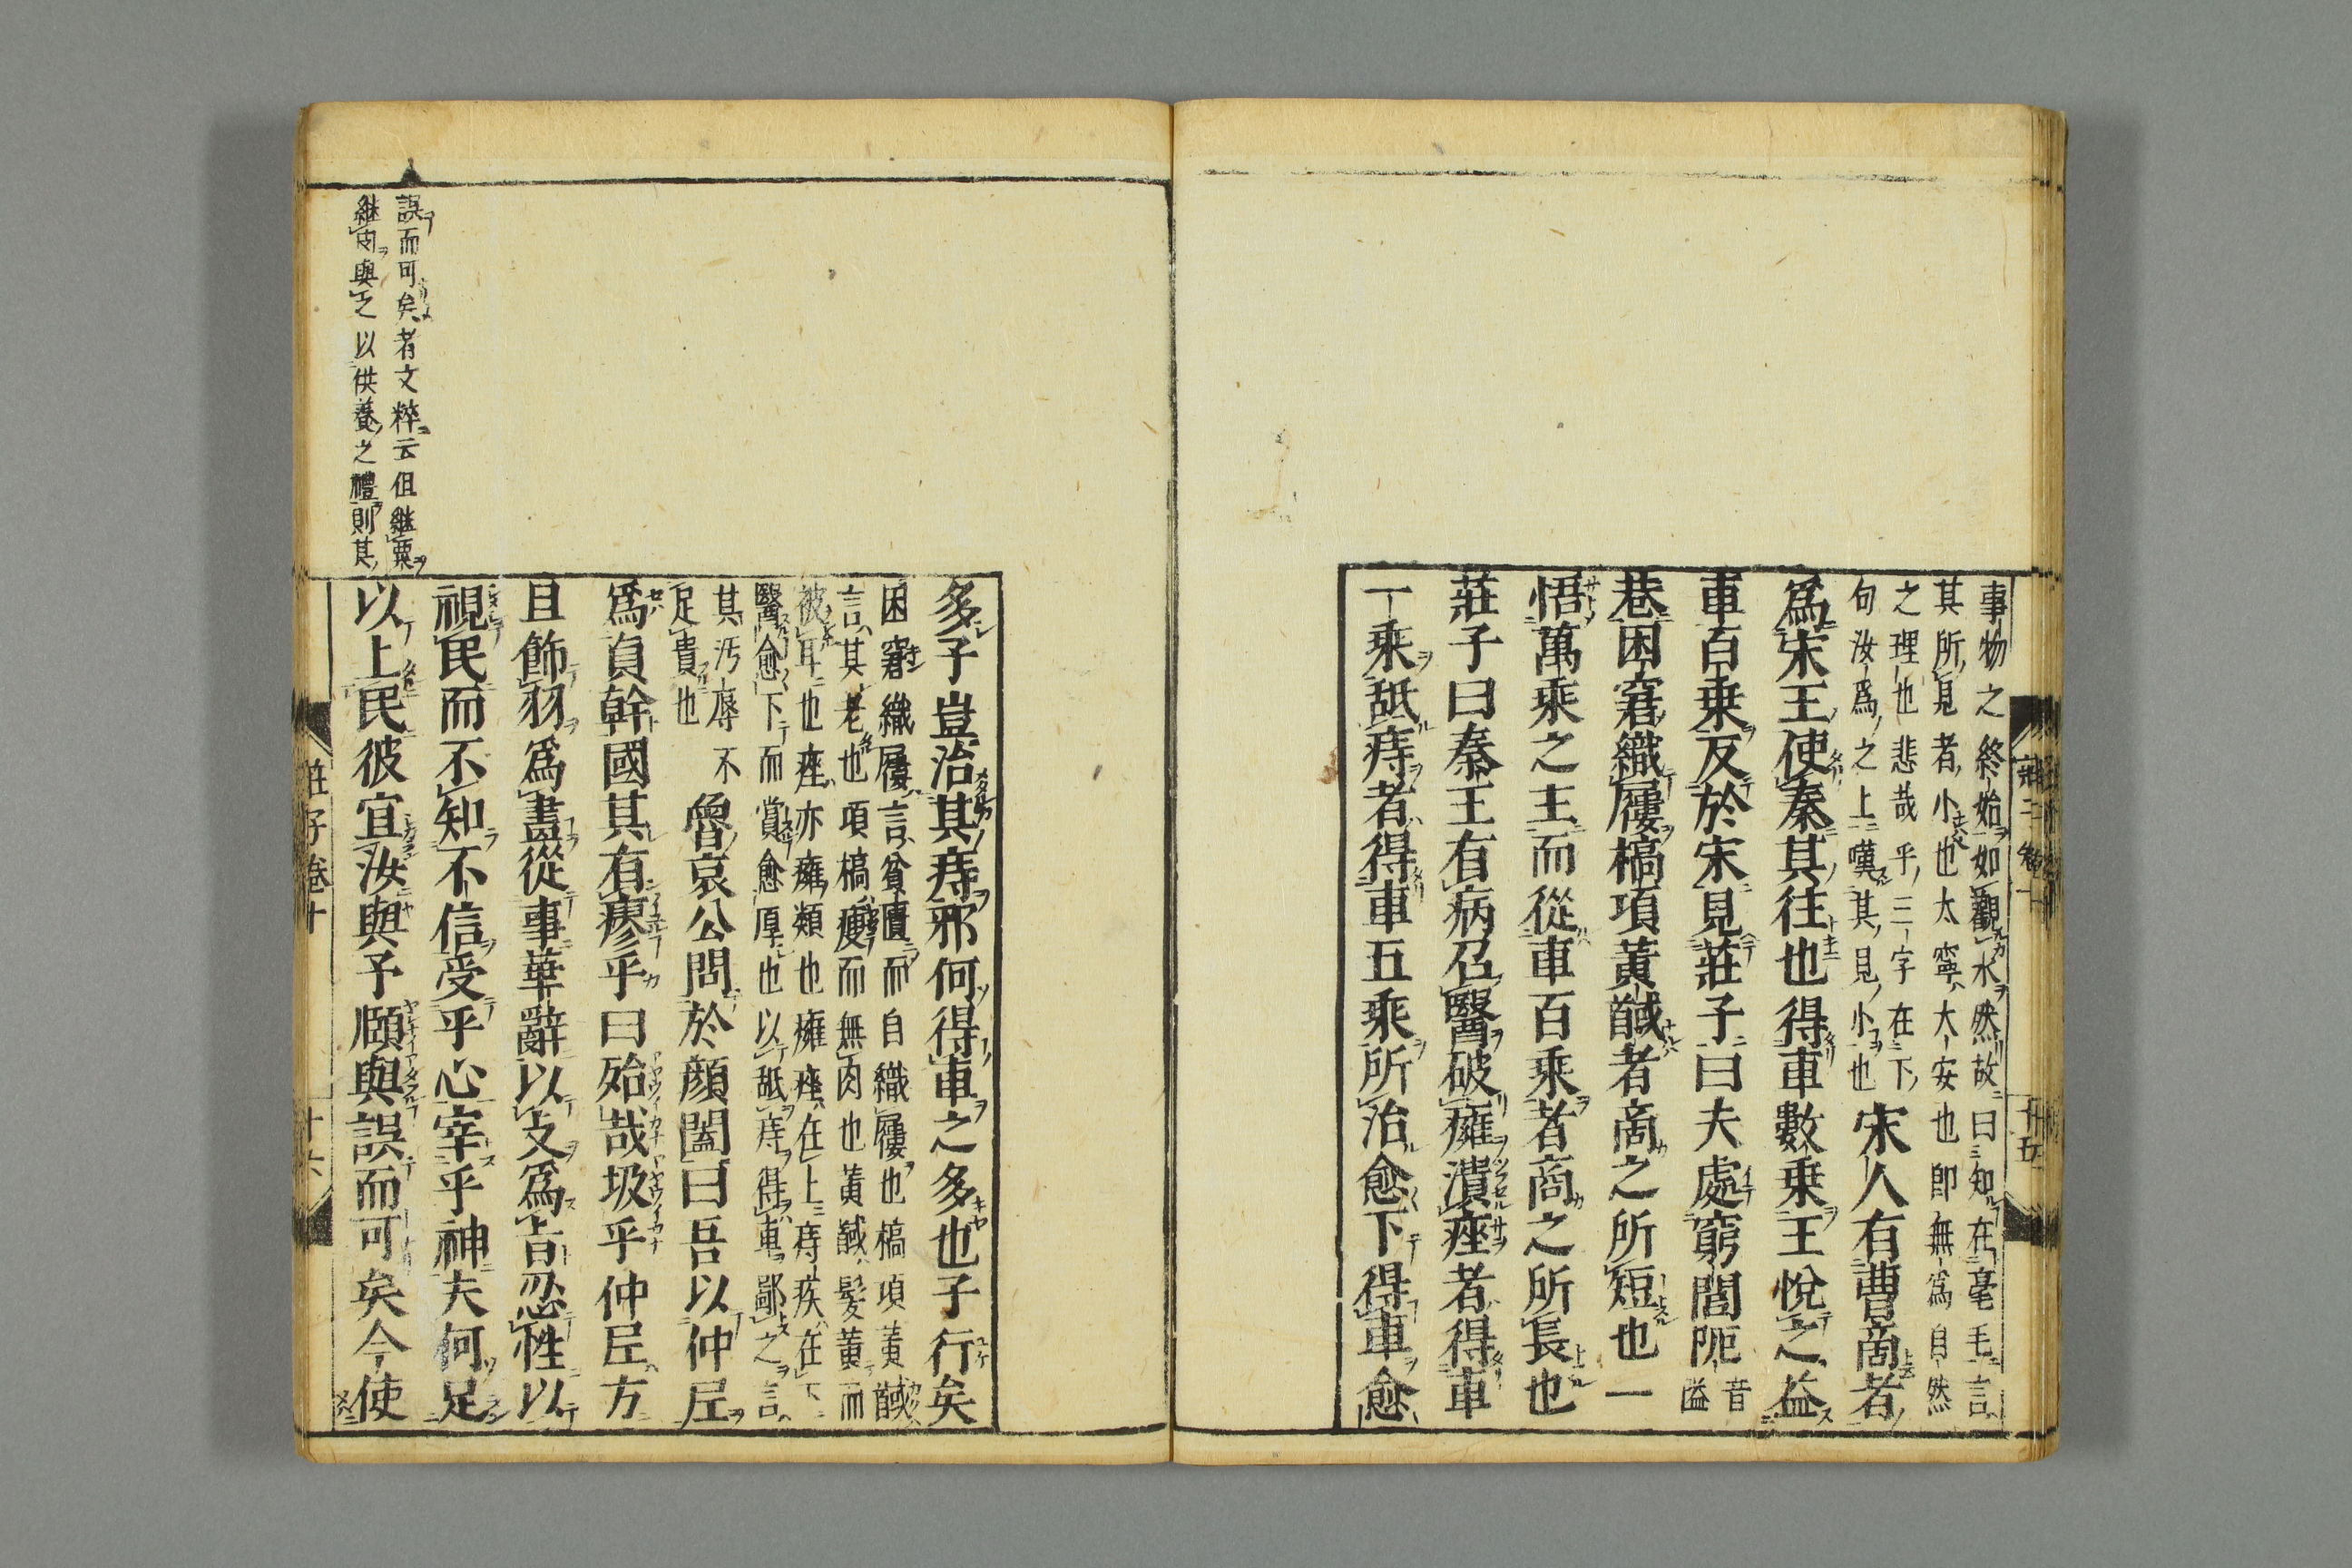 事物之終始如觀水然故曰知在毫毛言
其所見者小也太寧大安也即無爲自然
之理也悲哉乎三字在下
句汝爲之上嘆其見小也
宋人有曹商者
爲宋王使秦其往也得車數乗王悅之益
車百乗反於宋見莊子曰夫處窮閭阨音
隘
巷困窘織屨槁項黃馘者商之所短也一
悟萬乘之主而從車百乘者商之所長也
莊子曰秦王有病召醫破癰潰痤者得車
一乘舐痔者得車五乘所治愈下得車愈
多子豈治其痔邪何得車之多也子行矣
困窘織屨言貧匱而自織屨也槁項黃馘
言其老也項槁瘦而無肉也黃馘髮黃而
被耳也痤亦癰類也癰痤在上痔疾在下
醫愈下而賞愈厚也以舐痔得車鄙之言
其汚辱不
足貴也
魯哀公問於顏闔曰吾以仲尼
爲貞幹國其有瘳乎曰殆哉圾乎仲尼方
且飾羽爲畫從事華辭以支爲旨忍性以
視民而不知不信受乎心宰乎神夫何足
以上民彼宜汝與予頤與誤而可矣今使
誤而可矣者文粹云但継粟
継肉與之以供養之禮則其
莊子卷十
十六
十五